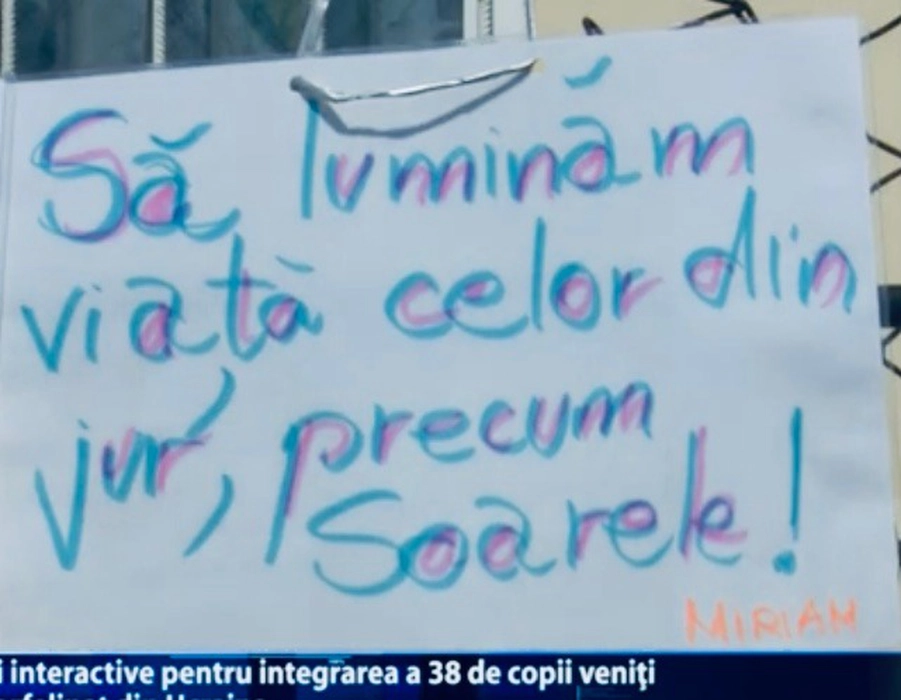 Să luminăm
viață celor din
jur, precum
Soarele!
MIRIAM
i interactive pentru integrarea a 38 de copii veniți